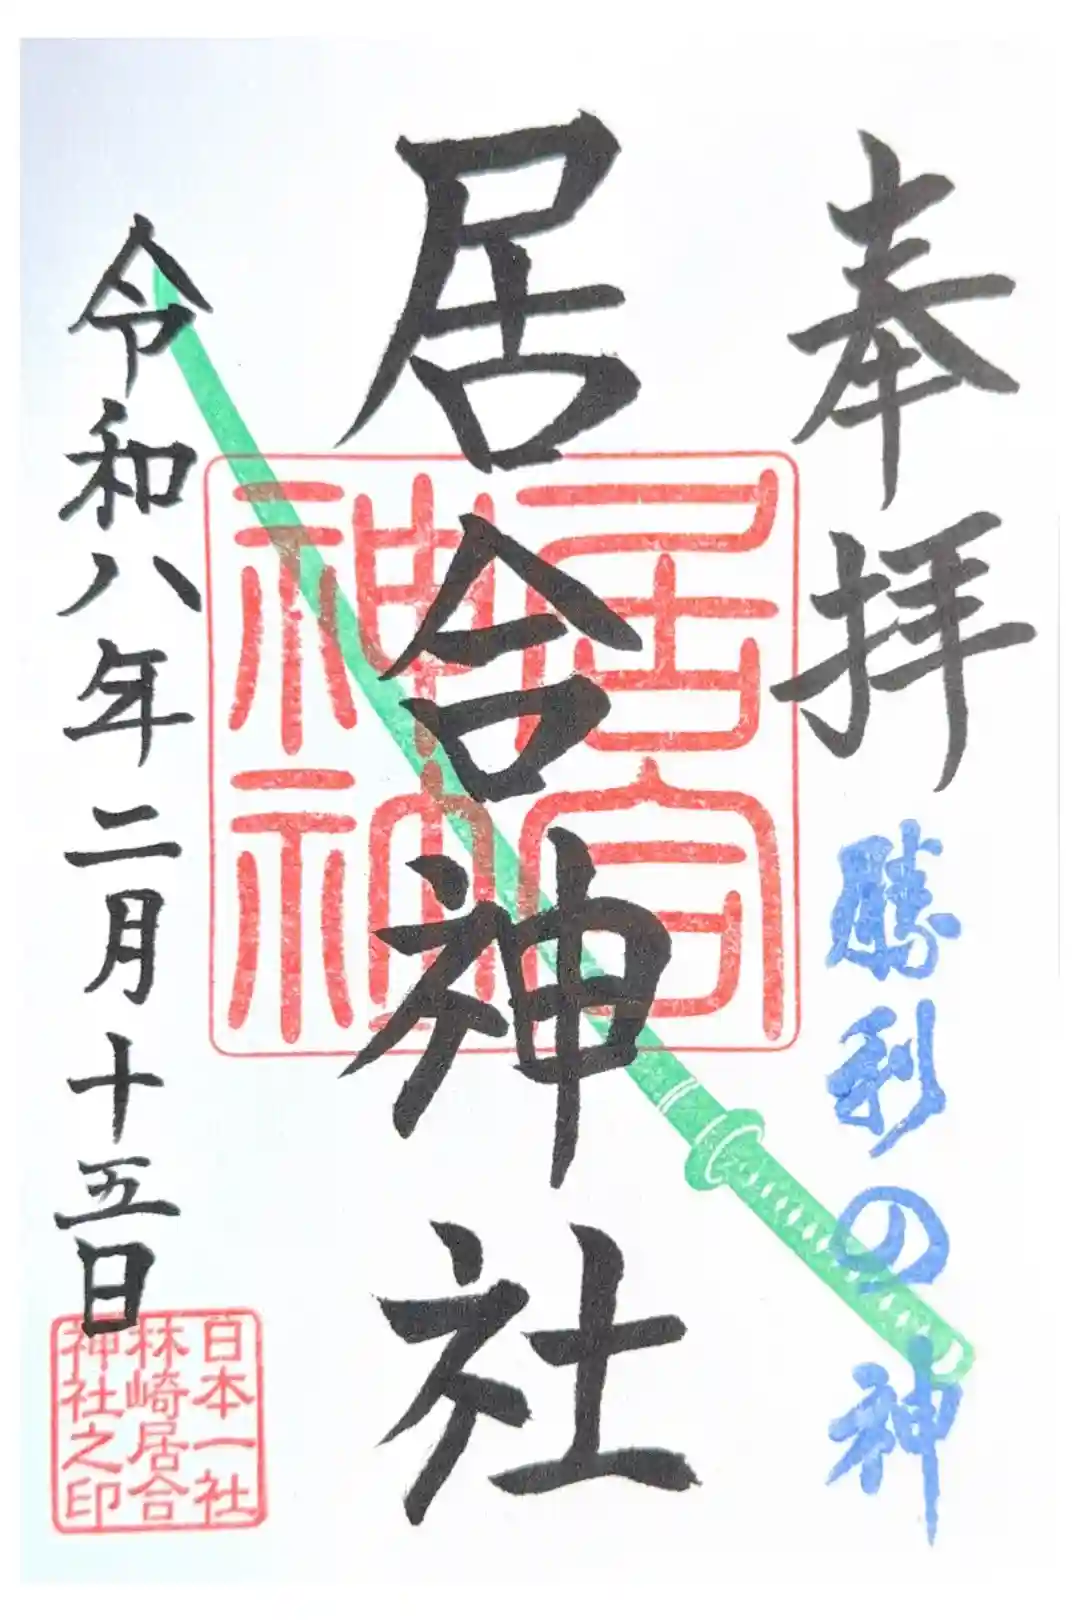 奉拝
勝利の神
居合神社
居合神社
令和八年二月十五日
日本一社
林崎居合
神社之印